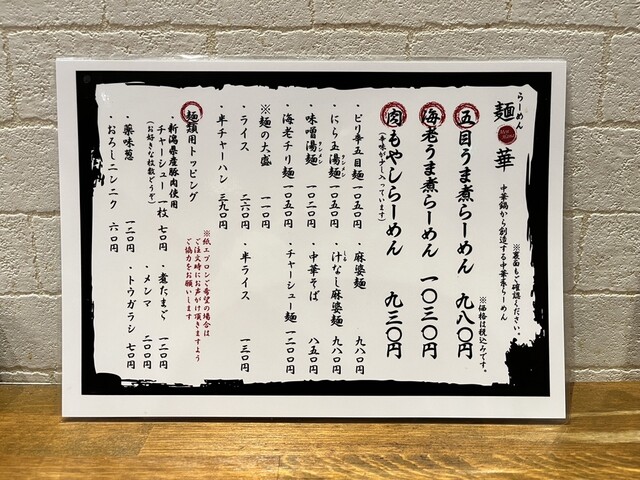 らーめん
麺華
中華鍋から創造する中華系らーめん
※裏面もご確認ください。
※価格は税込みです。
五目うま煮らーめん 九八〇円
海老うま煮らーめん 一〇三〇円
肉もやしらーめん 九三〇円
(辛味が少し入っています)
・ピリ辛五目麺 一〇五〇円
・麻婆麺 九八〇円
・にら玉湯麺 一〇五〇円
・汁なし麻婆麺 九八〇円
・味噌湯麺 一〇二〇円
・中華そば 八五〇円
・海老チリ麺 一〇五〇円
・チャーシュー麺 一二〇〇円
※麺の大盛 一一〇円
・ライス 二六〇円
・半ライス 一三〇円
・半チャーハン 三九〇円
※紙エプロンご希望の場合は
ご注文時にお声がけ頂きますよう
ご協力をお願いします
麺類用トッピング
・新潟県産豚肉使用
チャーシュー 一枚 七〇円
(お好きな枚数どうぞ)
・煮たまご 一二〇円
・メンマ 二〇〇円
・薬味葱 一二〇円
・トウガラシ 七〇円
・おろしニンニク 六〇円